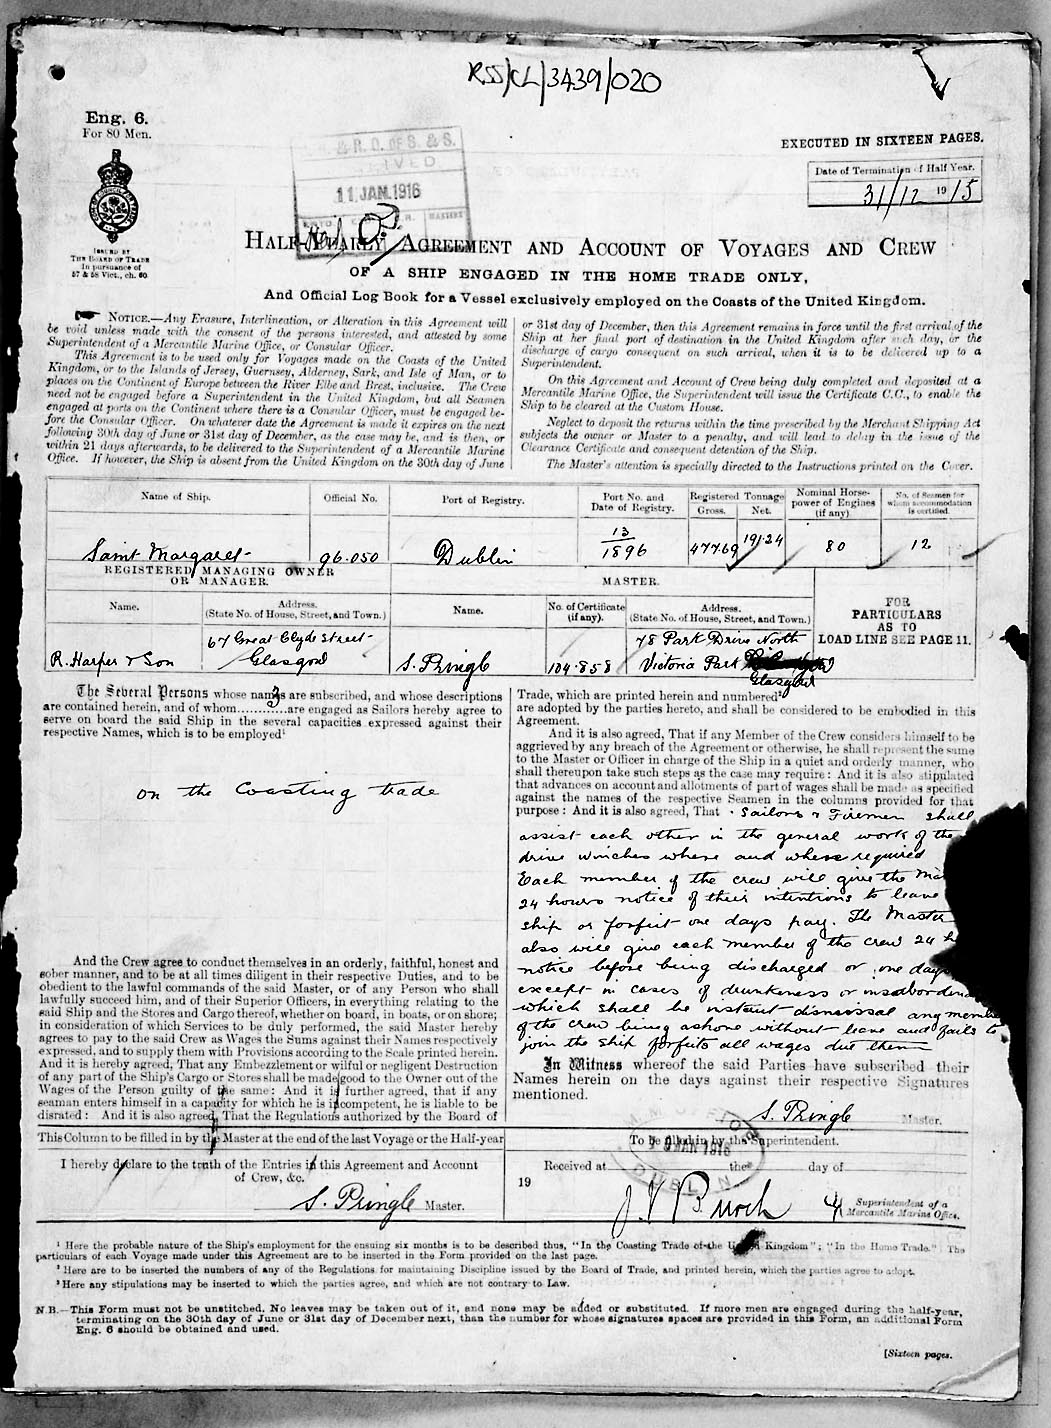 RSS/CL/3439/020
Eng. 6.
For 80 Men.
ISSUED BY
THE BOARD OF TRADE
In pursuance of
57 & 58 Vict., ch. 60.
& R. O. OF S. & S.
11 JAN. 1916
EXECUTED IN SIXTEEN PAGES.
Date of Termination of Half Year.
31/12 1915
HALF-YEARLY AGREEMENT AND ACCOUNT OF VOYAGES AND CREW
OF A SHIP ENGAGED IN THE HOME TRADE ONLY,
And Official Log Book for a Vessel exclusively employed on the Coasts of the United Kingdom.
NOTICE.—Any Erasure, Interlineation, or Alteration in this Agreement will
be void unless made with the consent of the persons interested, and attested by some
Superintendent of a Mercantile Marine Office, or Consular Officer.
This Agreement is to be used only for Voyages made on the Coasts of the United
Kingdom, or to the Islands of Jersey, Guernsey, Alderney, Sark, and Isle of Man, or to
places on the Continent of Europe between the River Elbe and Brest, inclusive. The Crew
need not be engaged before a Superintendent in the United Kingdom, but all Seamen
engaged at ports on the Continent where there is a Consular Officer, must be engaged be-
fore the Consular Officer. On whatever date the Agreement is made it expires on the next
following 30th day of June or 31st day of December, as the case may be, and is then, or
within 21 days afterwards, to be delivered to the Superintendent of a Mercantile Marine
Office. If however, the Ship is absent from the United Kingdom on the 30th day of June
or 31st day of December, then this Agreement remains in force until the first arrival of the
Ship at her final port of destination in the United Kingdom after such day, or the
discharge of cargo consequent on such arrival, when it is to be delivered up to a
Superintendent.
On this Agreement and Account of Crew being duly completed and deposited at a
Mercantile Marine Office, the Superintendent will issue the Certificate C.C., to enable the
Ship to be cleared at the Custom House.
Neglect to deposit the returns within the time prescribed by the Merchant Shipping Act
subjects the owner or Master to a penalty, and will lead to delay in the issue of the
Clearance Certificate and consequent detention of the Ship.
The Master's attention is specially directed to the Instructions printed on the Cover.
Name of Ship. Official No. Port of Registry. Port No. and Date of Registry. Registered Tonnage Gross. Net. Nominal Horse-power of Engines (if any) No. of Seamen for whom accommodation is certified.
Saint Margaret 96.050 Dublin 13/1896 477.69 191.24 80 12
REGISTERED MANAGING OWNER
OR MANAGER.
MASTER.
Name. Address. (State No. of House, Street, and Town.) Name. No. of Certificate (if any). Address. (State No. of House, Street, and Town.)
FOR
PARTICULARS
AS TO
LOAD LINE SEE PAGE 11.
R. Harper & Son 67 Great Clyde Street Glasgow S. Pringle 104.858 78 Park Drive North Victoria Park Glasgow
The Several Persons whose names are subscribed, and whose descriptions
are contained herein, and of whom 3 are engaged as Sailors hereby agree to
serve on board the said Ship in the several capacities expressed against their
respective Names, which is to be employed¹
on the Coasting trade
And the Crew agree to conduct themselves in an orderly, faithful, honest and
sober manner, and to be at all times diligent in their respective Duties, and to be
obedient to the lawful commands of the said Master, or of any Person who shall
lawfully succeed him, and of their Superior Officers, in everything relating to the
said Ship and the Stores and Cargo thereof, whether on board, in boats, or on shore;
in consideration of which Services to be duly performed, the said Master hereby
agrees to pay to the said Crew as Wages the Sums against their Names respectively
expressed, and to supply them with Provisions according to the Scale printed herein.
And it is hereby agreed, That any Embezzlement or wilful or negligent Destruction
of any part of the Ship's Cargo or Stores shall be made good to the Owner out of the
Wages of the Person guilty of the same: And it is further agreed, that if any
seaman enters himself in a capacity for which he is incompetent, he is liable to be
disrated: And it is also agreed, That the Regulations authorized by the Board of
Trade, which are printed herein and numbered²
are adopted by the parties hereto, and shall be considered to be embodied in this
Agreement.
And it is also agreed, That if any Member of the Crew considers himself to be
aggrieved by any breach of the Agreement or otherwise, he shall represent the same
to the Master or Officer in charge of the Ship in a quiet and orderly manner, who
shall thereupon take such steps as the case may require: And it is also stipulated
that advances on account and allotments of part of wages shall be made as specified
against the names of the respective Seamen in the columns provided for that
purpose: And it is also agreed, That ³ Sailors & Firemen shall
assist each other in the general work of the
drive winches where and where required
Each member of the crew will give the
24 hours notice of their intentions to leave
ship or forfeit one days pay. The Master
also will give each member of the crew 24
notice before being discharged or one days
except in cases of drunkeness or
which shall be instant dismissal any
of the crew being ashore without leave and fails to
join the ship forfeits all wages due them
In Witness whereof the said Parties have subscribed their
Names herein on the days against their respective Signatures
mentioned.
S. Pringle Master.
This Column to be filled in by the Master at the end of the last Voyage or the Half-year
I hereby declare to the truth of the Entries in this Agreement and Account
of Crew, &c.
S. Pringle Master.
To be filled in by the Superintendent.
JAN 1916
DUBLIN
Received at the day of
19
Superintendent of a
Mercantile Marine Office.
¹ Here the probable nature of the Ship's employment for the ensuing six months is to be described thus, "In the Coasting Trade of the United Kingdom"; "In the Home Trade." The
particulars of each Voyage made under this Agreement are to be inserted in the Form provided on the last page.
² Here are to be inserted the numbers of any of the Regulations for maintaining Discipline issued by the Board of Trade, and printed herein, which the parties agree to adopt.
³ Here any stipulations may be inserted to which the parties agree, and which are not contrary to Law.
N.B.—This Form must not be unstitched. No leaves may be taken out of it, and none may be added or substituted. If more men are engaged during the half-year,
terminating on the 30th day of June or 31st day of December next, than the number for whose signatures spaces are provided in this Form, an additional Form
Eng. 6 should be obtained and used.
[Sixteen pages.